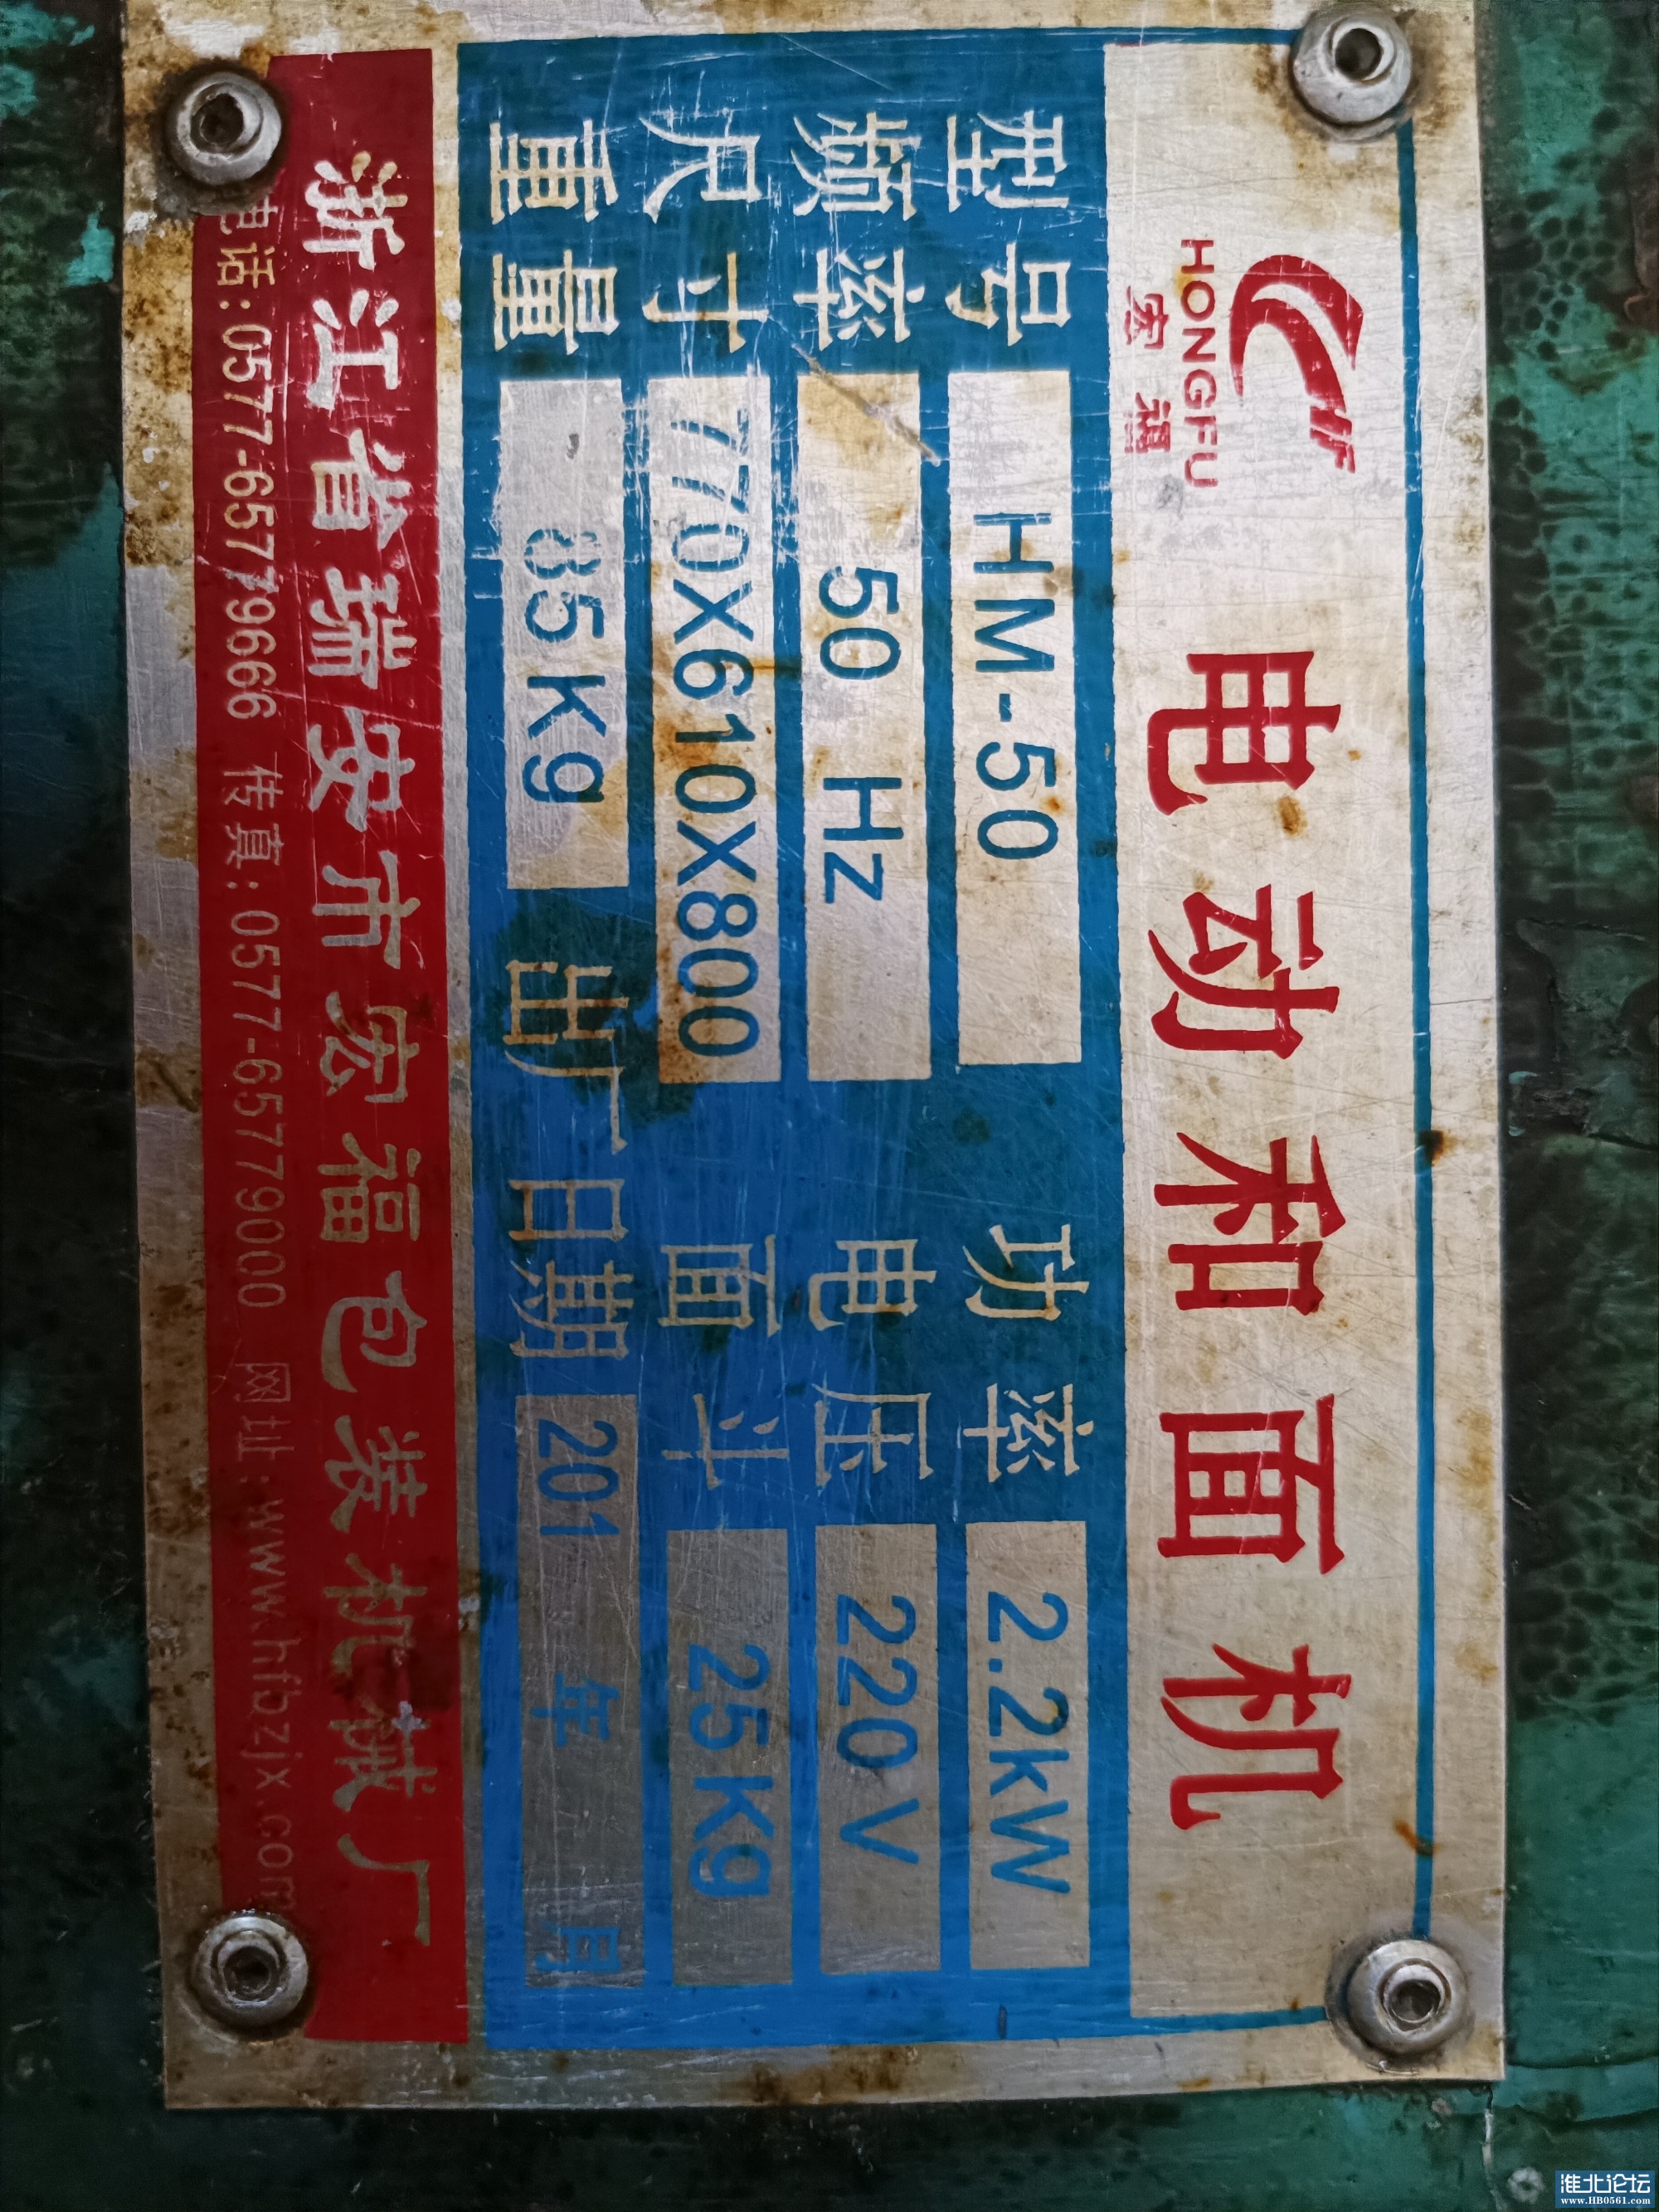 HONGFU
宏福
电动和面机
型号 HM-50 功率 2.2kW
频率 50 Hz 电压 220V
尺寸 770X610X800 面斗 25Kg
重量 85Kg 出厂日期 201 年 月
浙江省瑞安市宏福包装机械厂
电话:0577-65779666 传真:0577-65779000 网址:www.hfbzjx.com
淮北论坛
www.HB0561.com